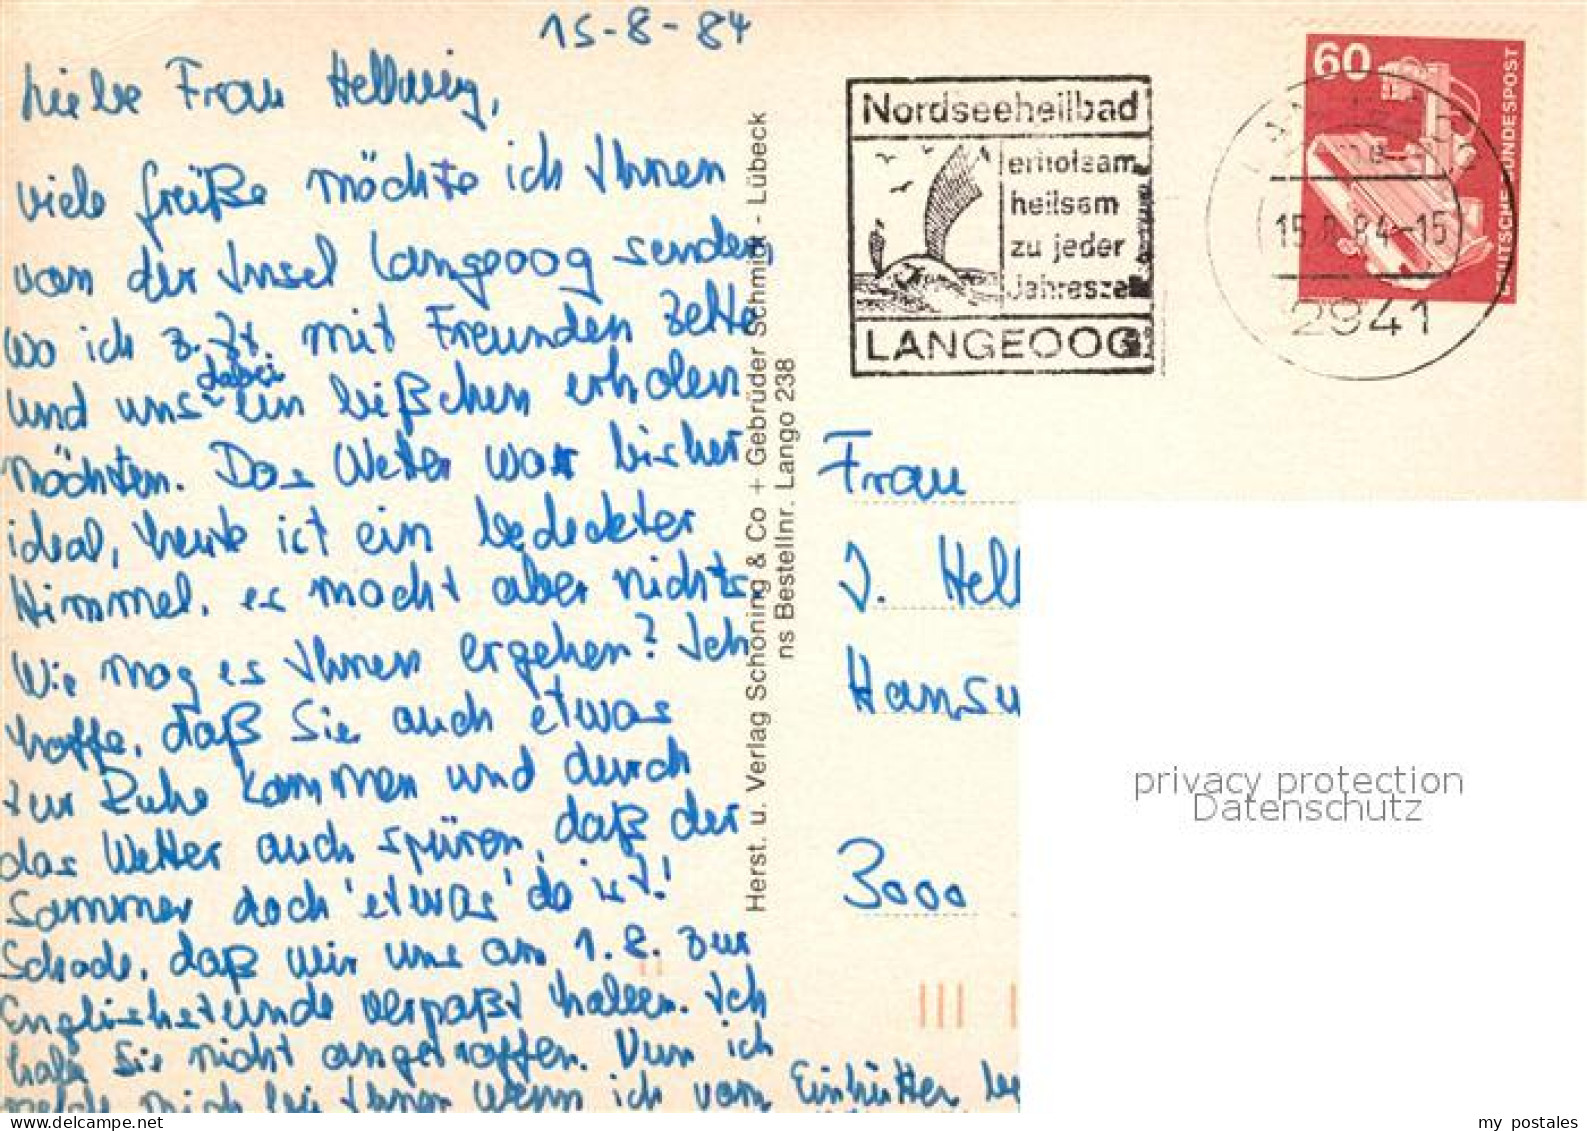 15-8-84
Liebe Frau Hellwig,
viele Grüße möchte ich Ihnen
von der Insel Langeoog senden,
wo ich z. Zt. mit Freunden zelte
dabei
und uns ein bißchen erholen
möchten. Das Wetter war bisher
ideal, heute ist ein bedeckter
Himmel, es macht aber nichts.
Wie mag es Ihnen ergehen? Ich
hoffe, daß Sie auch etwas
zur Ruhe kommen und durch
das Wetter auch spüren, daß der
Sommer doch 'etwas' da ist!
Schade, daß wir uns am 1.8. zur
Englischstunde verpaßt haben. Ich
habe Sie nicht angetroffen. Nun ich
melde mich bei Ihnen wenn ich vom Einhütten be
Herst. u. Verlag Schöning & Co + Gebrüder Schmidt - Lübeck
ns Bestellnr. Lango 238
Nordseeheilbad
erholsam
heilsam
zu jeder
Jahreszeit
LANGEOOG
60
DEUTSCHE BUNDESPOST
15.8.84-15
2941
Frau
J. Hell
Hansu
3000
privacy protection
Datenschutz
my postales